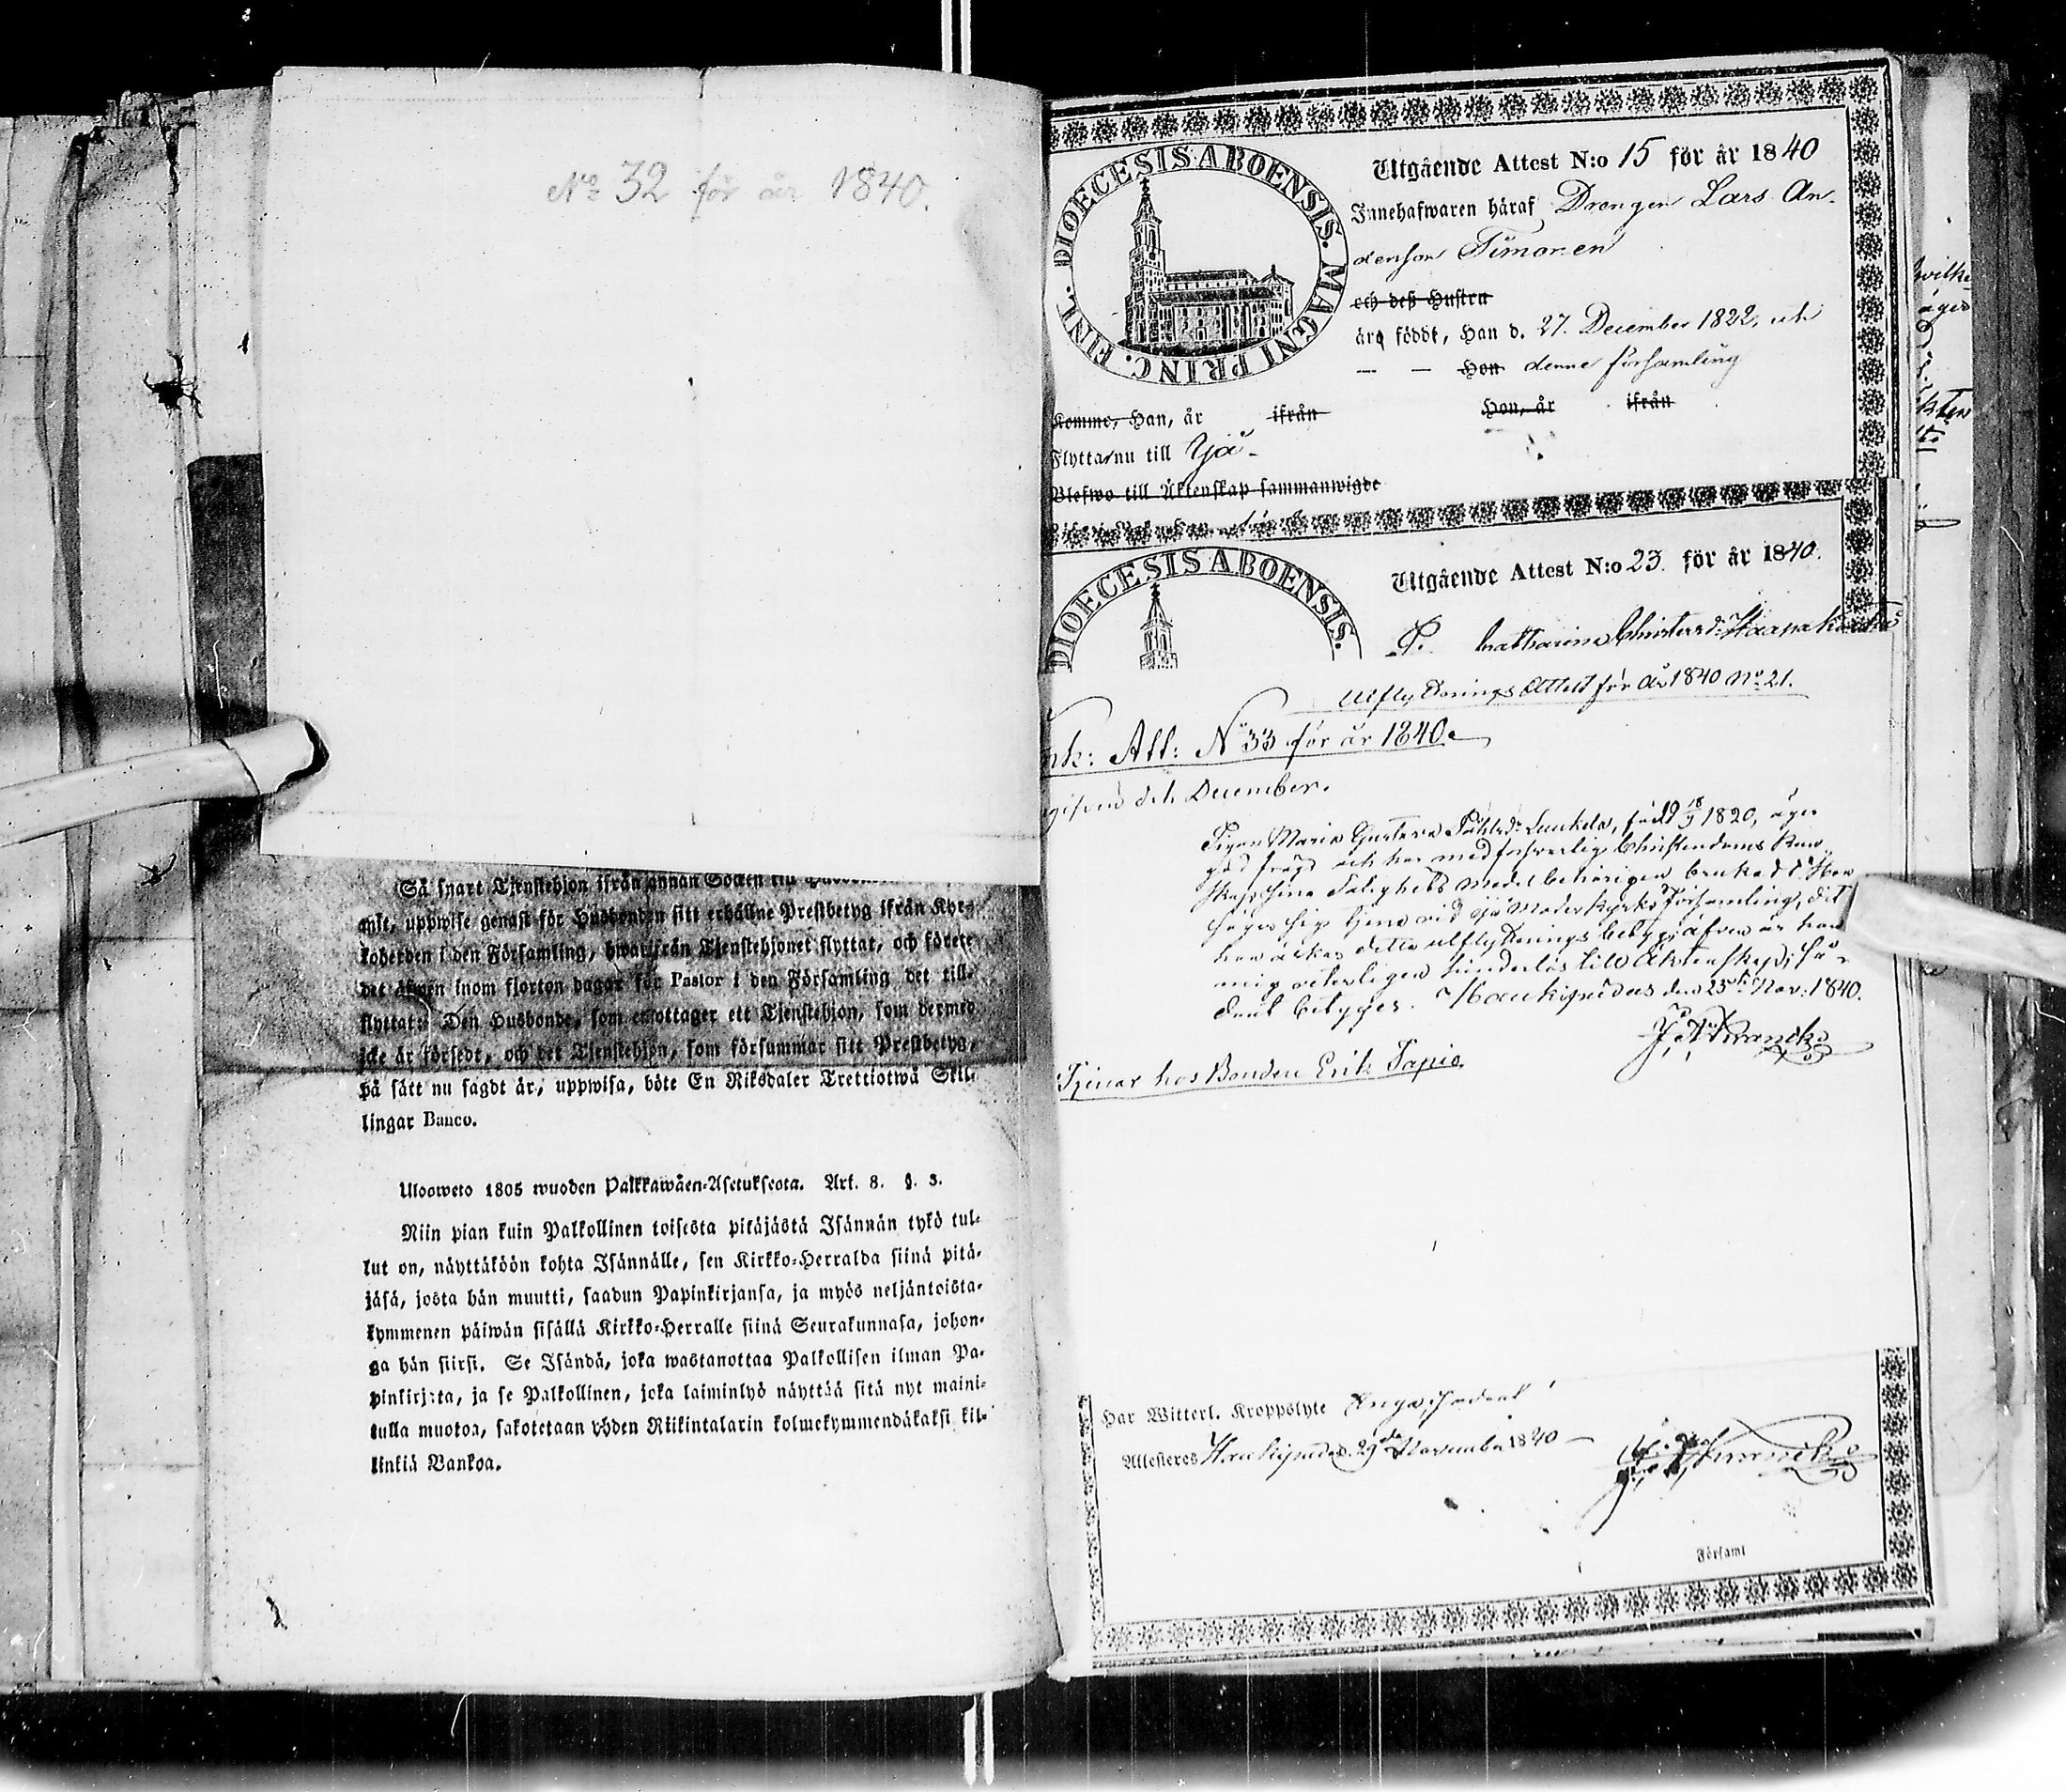 No 32 för år 1840.
Så snart Tjenstehjon ifrån annan Socken till
amt, uppwise genast för Husbonden sitt erhållne Prestbetyg ifrån Kyr-
koherden i den Församling, hwarifrån Tjenstehjonet flyttat, och förete
det äfwen inom fjorton dagar för Pastor i den Församling det till-
flyttat: Den Husbonde, som emottager ett Tjenstehjon, som dermed
icke är försedt, och det Tjenstehjon, som försummar sitt Prestbetyg,
på sätt nu sagdt är, uppwisa, böte En Riksdaler Trettiotwå Skil-
lingar Banco.
Uloosweto 1805 wuoden Palkkawäen-Asetuksesta. Art. 8. §. 3.
Niin pian kuin Palkollinen toisesta pitäjästä Isännän tykö tul-
lut on, näyttäköön kohta Isännälle, sen Kirkko-Herralda siinä pitä-
jäsä, josta hän muutti, saadun Papinkirjansa, ja myös neljäntoista-
kymmenen päiwän sisällä Kirkko-Herralle siinä Seurakunnasa, johon-
ga hän siirsi. Se Isändä, joka wastanottaa Palkollisen ilman Pa-
pinkirjata, ja se Palkollinen, joka laiminlyö näyttää sitä nyt maini-
tulla muotoa, sakotetaan yhden Riikintalarin kolmekymmendäkaksi kil-
linkiä Bankoa.
DIOECESIS ABOENSIS. MAGNI PRINC. FINL.
Utgående Attest N:o 15 för år 1840
Innehafwaren häraf Drengen Lars An-
derson Timonen
och deß Hustru
äro född, Han d. 27. December 1822, uti
— — Hon denne församling
Komme, Han, år ifrån Hon, år ifrån
Flytta nu till Yjä-
Blefwo till Äktenskap sammanwigde
DIOECESIS ABOENSIS.
Utgående Attest N:o 23. för år 1840.
P. Catharina Christersd: Haapa
Utflyttnings Attest för År 1840 No 21.
nk: Att: No 33 för år 1840.
gifven d. 6 December.
Pigan Maria Gustava Luukela, född 18/9 1820, äger
god frägd och har med försvarlig Christendoms Kun-
skap sina Salighets medel behörigen brukadt. Hon
säger sig tjena vid Yjä Moderkyrko Församling, dit
hon detta utflyttnings betyg; äfven är hon
mig veterligen hinderlös till Äktenskap; så-
dant betygar. Haukipudas den 25te Nov: 1840.
Tjenar hos Bonden Erik Tapio.
Har Witterl. Kroppslyte Inga,
Attesteres Haukipudas d. 29de November 1840 —
Församl